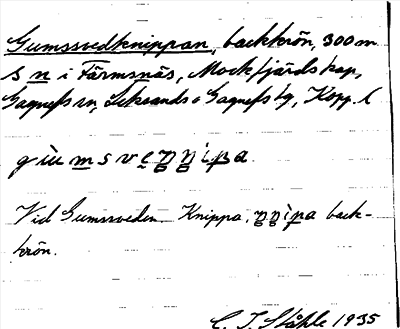 Gumssvedknippan, backkrön, 300 m
S n i Färmsnäs, Mockfjärds kap,
Gagnefs sn, Leksands o Gagnefs tg, Kopp. l
Vid Gumssveden Knippa, back-
krön.
C. I. Ståhle 1935